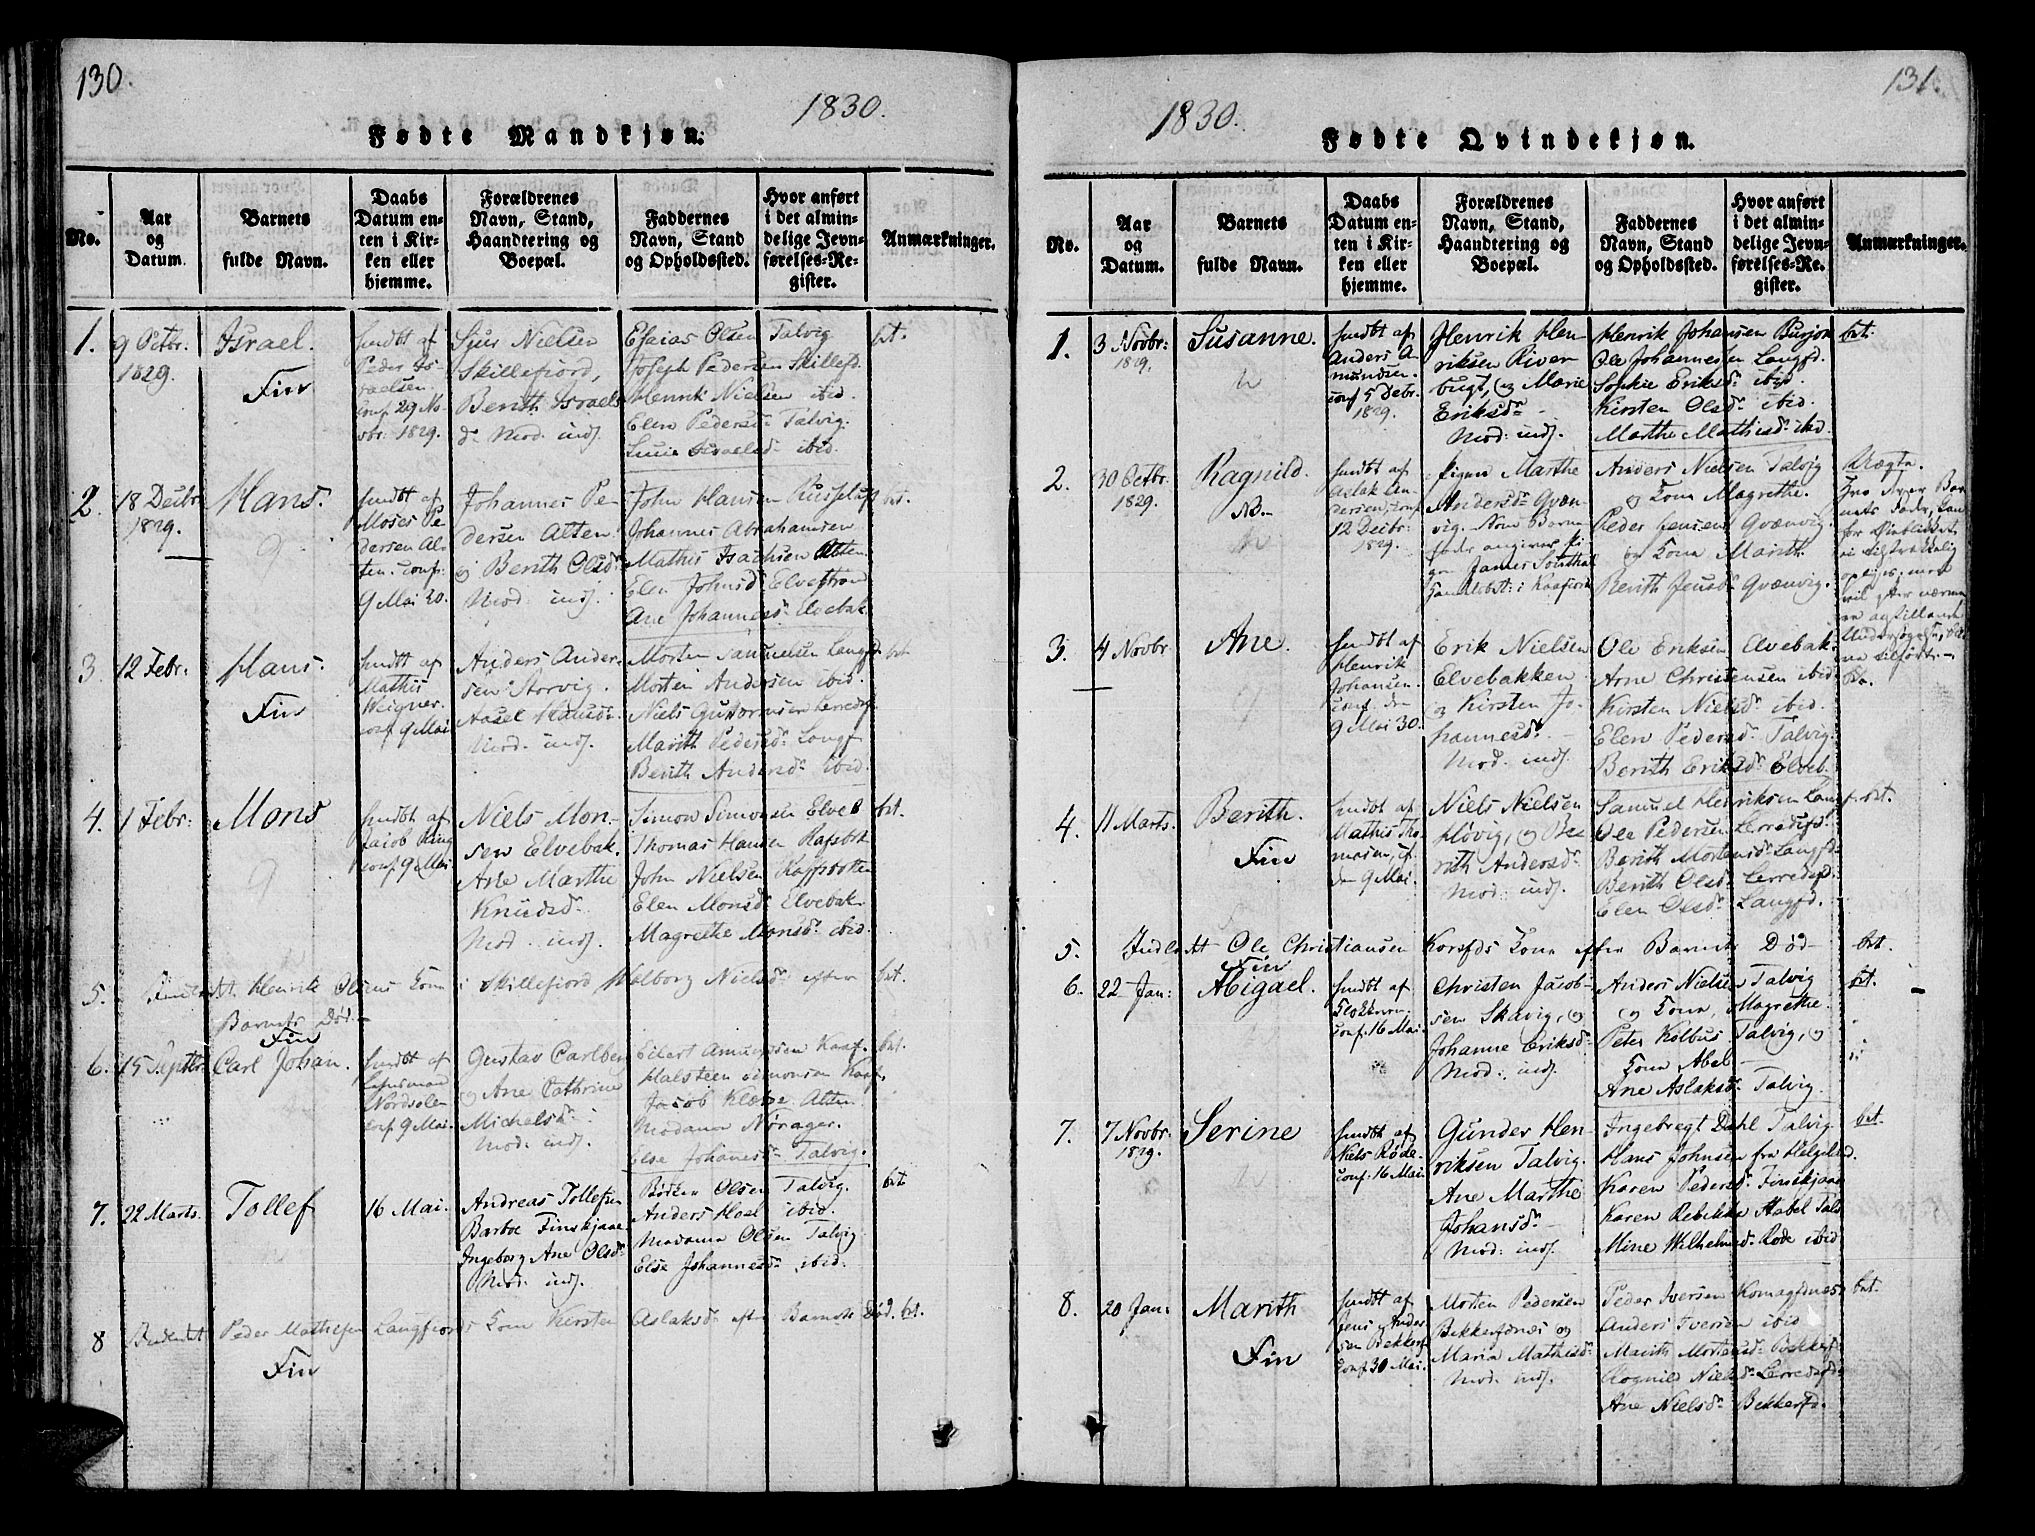 130.
1830.
Fødte Mandkjøn.
No.
Aar og Datum.
Barnets fulde Navn.
Daabs Datum enten i Kirken eller hjemme.
Forældrenes Navn, Stand, Haandtering og Boepæl.
Faddernes Navn, Stand og Opholdssted.
Hvor anført i det almindelige Jevnførelses-Register.
Anmærkninger.
1.
9 Octbr:
1829.
Israel.
Fin
hmdbt af
Peder Israelsen
conf 29 Novbr. 1829.
Sjur Nielsen
Skillefiord,
Berith Israels
d. Mod. indf.
Esaias Olsen Talvig
Joseph Pedersen Skillefd.
Henrik Nielsen ibid.
Elen Pedersd. Talvig.
Lucie Israelsd. ibid.
bt.
2.
18 Decbr
1829.
Hans.
hmdbt af
Moses Pedersen Alten. conf.
9 Mai 30.
Johannes Pedersen Alten
og Berith Olsd.
Mod. indf.
John Hansen Russeluft
Johannes Abrahamsen
Mathis Isachsen Alten.
Elen Johnsd. Elvestrand
Ane Johannesd. Elvebak
bt.
3.
12 Febr:
Hans.
Fin
hmdbt af
Mathis
Weigner
conf 9 Mai
Anders Andersen Storvig.
Aasel Hansd.
Mod. indf.
Morten Samuelsen Langfd.
Morten Andersen ibid.
Niels Guttormsen Lerredsfd
Marith Pedersd. Langf
Berith Andersd. ibid.
bt
4.
1 Febr:
Mons
hmdbt af
Jacob Ring
conf 9 Mai
Niels Monsen Elvebak.
Ane Marthe
Knudsd.
Mod. indf.
Simon Simonsen Elveb
Thomas Hansen Rafsbotn
John Nielsen Raffsbotten
Elen Monsd. Elvebak
Magrethe Monsd. ibid.
bt.
5.
Henrik Olsens Kone i Skillefiord Walborg Nielsd. efter
Barnets Død.
bt.
6.
15 Septbr
Fin
Carl Johan.
hmdbt af
Lensmand
Nordvolen
conf 9 Mai.
Gustav Carlberg
og Ane Cathrine
Michelsd.
Mod. indf.
Eilert Amundsen Kaaf.
Halsteen Simonsen Kaaf.
Jacob Klæve Alten
Madame Nørager.
Else Johanesd. Talvig.
bt.
7.
22 Marts.
Tollef
16 Mai.
Andreas Tollefsen
Barboe Finskjaae
Ingeborg Ane Olsd.
Mod. indf.
Bødker Olsen Talvig.
Anders Hoel ibid.
Madame Olsen Talvig
Else Johannesd. ibid.
bt
8
Indledt Peder Mathisen Langfiords Kone Kirsten Aslaksd. efter Barnets Død. bt.
Fin
131.
1830.
Fødte Qvindekjøn.
No.
Aar og Datum.
Barnets fulde Navn.
Daabs Datum enten i Kirken eller hjemme.
Forældrenes Navn, Stand, Haandtering og Boepæl.
Faddernes Navn, Stand og Opholdssted.
Hvor anført i det almindelige Jevnførelses-Register.
Anmærkninger.
1.
3 Novbr:
1829.
Susanne.
hmdbt af
Anders Amundsen.
conf 5 Debr.
1829.
Henrik Henriksen Riverbugt, og Marie
Eriksd.
Mod: indf.
Henrik Johansen Burfjor
Ole Johannesen Langfd.
Sophie Eriksd. ibid.
Kirsten Olsd. ibid.
Marthe Mathisd. ibid.
bt:
2.
30 Octbr.
1829.
Ragnild.
NB.
hmdbt af
Aslak Andersen, conf
12 Decbr:
1829.
Pigen Marthe
Andersd. Qvænvig. Som Barne
fader angiver Pigen James
i Kaafiord
Anders Nielsen Talvig
og Kone Magrethe.
Peder Jensen Qvænvig.
og Kone Marith
Berith Jensd. Qvænvig.
Uægte.
3.
4 Novbr
Ane.
hmdbt af
Henrik
Johansen.
conf. den
9 Mai 30.
Erik Nielsen
Elvebakken
og Kirsten Johannesd.
Mod. indf.
Ole Eriksen Elvebak
Arne Christensen ibid
Kirsten Nielsd. ibid.
Elen Pedersd. Talvig.
Berith Eriksd. Elveb.
4.
11 Marts.
Berith.
Fin
hmdbt af
Mathis Thomasen, cf.
d. 9 Mai.
Niels Nielsen
Kløvig, og Berith Andersd.
Mod. indf.
Samuel Henriksen Langf.
Ole Pedersen Lerredsfd.
Berith Mortensd. Langfd.
Berith Olsd. Lerredsfd.
Elen Olsd. Langfd.
bt.
5.
Indledt Ole Christiansen Korsfds Kone efter Barnets Død
Fin
bt.
6.
22 Jan:
Abigael.
hmdbt af
Klokkeren
conf. 16 Mai.
Christen Jacobsen Skavig, og
Johanne Eriksd.
Mod. indf.
Anders Nielsen Talvig
og Kone, Magrethe.
Peter Kolbus Talvig, og
Kone Abel
Ane Aslaksd. Talvig.
bt.
7.
7 Novbr.
1829.
Serine
hmdbt af
Niels Røde.
conf. 16 Mai.
Gunder Henriksen Talvig.
Ane Marthe
Johansd.
Mod: indf.
Ingebregt Dahl Talvig
Hans Johnsen fra Helgelnd.
Karen Pedersd. Finskjaae
Karen Rebekka Habel Talv
Mine Wilhelmsd. Røde ibid.
bt.
8.
20 Jan:
Marith
Fin
hmdbt af
Jens Andersen Bekkerf
conf 30 Mai.
Morten Pedersen
Bekkerfdnæs og
Maria Mathisd.
Mod. indf.
Peder Iversen Komagfdnæs
Anders Iversen ibid
Marith Mortensd. Bekkerf
Ragnild Nielsd. Lerredsfd.
Ane Nielsd. Bekkerfd.
bt.